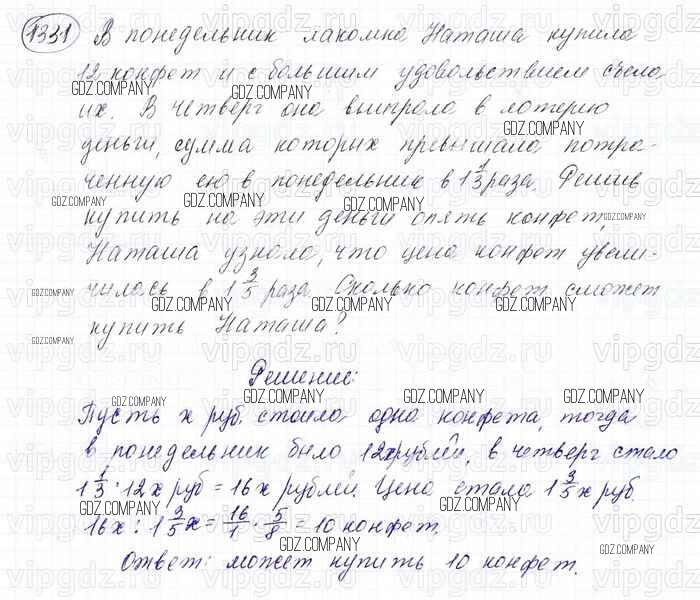 1331 В понедельник лакомка Наташа купила
12 конфет и с большим удовольствием съела
их. В четверг она выиграла в лотерею
деньги, сумма которых превышала потра-
ченную ею в понедельник в 1 1/3 раза. Решив
купить на эти деньги опять конфет,
Наташа узнала, что цена конфет увели-
чилась в 1 3/5 раза. Сколько конфет сможет
купить Наташа?
Решение:
Пусть x руб. стоила одна конфета, тогда
в понедельник было 12x рублей, в четверг стало
1 1/3 · 12x руб = 16x рублей. Цена стала 1 3/5 x руб.
16x : 1 3/5 x = 16/1 · 5/8 = 10 конфет.
Ответ: может купить 10 конфет.
GDZ.COMPANY
vipgdz.ru